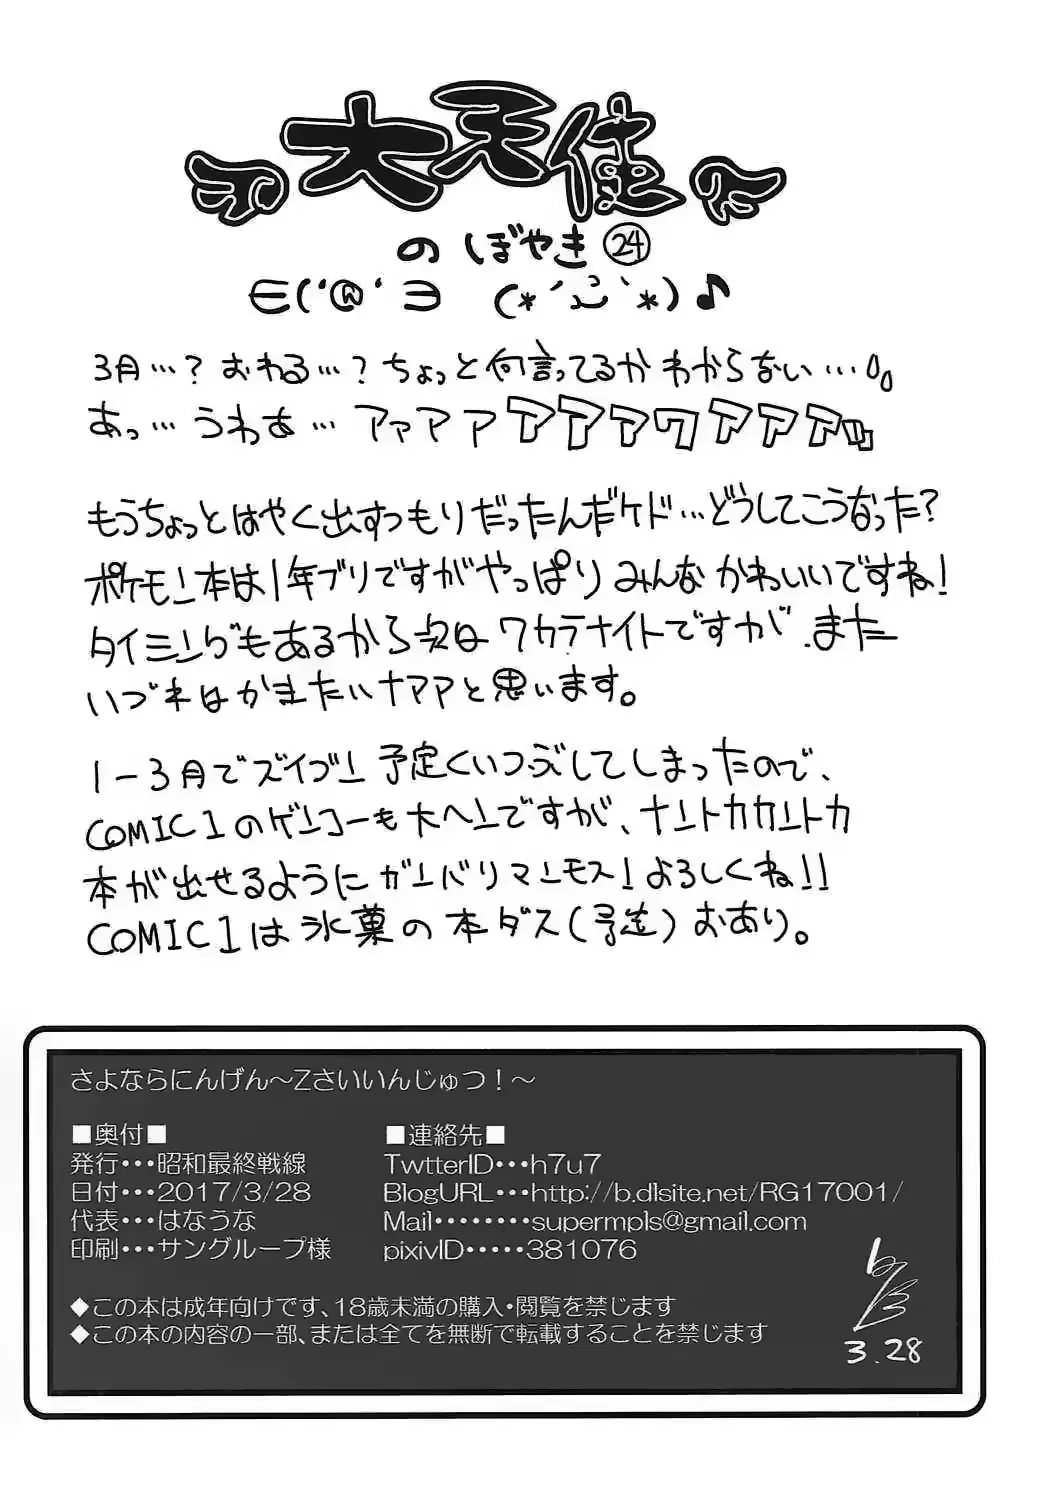 大天使
のぼやき㉔
∈('@'∋ (*´ω`*)♪
3月…?おわる…?ちょっと何言ってるかわからない…
あっ…うわぁ…アァアァアアァワアアアッ
もうちょっとはやく出すつもりだったんだケド…どうしてこうなった?
ポケモン本は1年ブリですがやっぱりみんなかわいいですね!
タイミングもあるから次はワカラナイトですが、また
いづれはかきたいナァァと思います。
1-3月でズイブン予定くいつぶしてしまったので、
COMIC1のゲンコーも大ヘンですが、ナントカカントカ
本が出せるようにガンバリマンモス!よろしくね!!
COMIC1は氷菓の本ダス(予定)おあり。
さよならにんげん~Zさいいんじゅつ!~
■奥付■
発行・・・昭和最終戦線
日付・・・2017/3/28
代表・・・はなうな
印刷・・・サングループ様
■連絡先■
TwtterID・・・h7u7
BlogURL・・・http://b.dlsite.net/RG17001/
Mail・・・・・・・・supermpls@gmail.com
pixivID・・・・・381076
◆この本は成年向けです、18歳未満の購入・閲覧を禁じます
◆この本の内容の一部、または全てを無断で転載することを禁じます
3.28